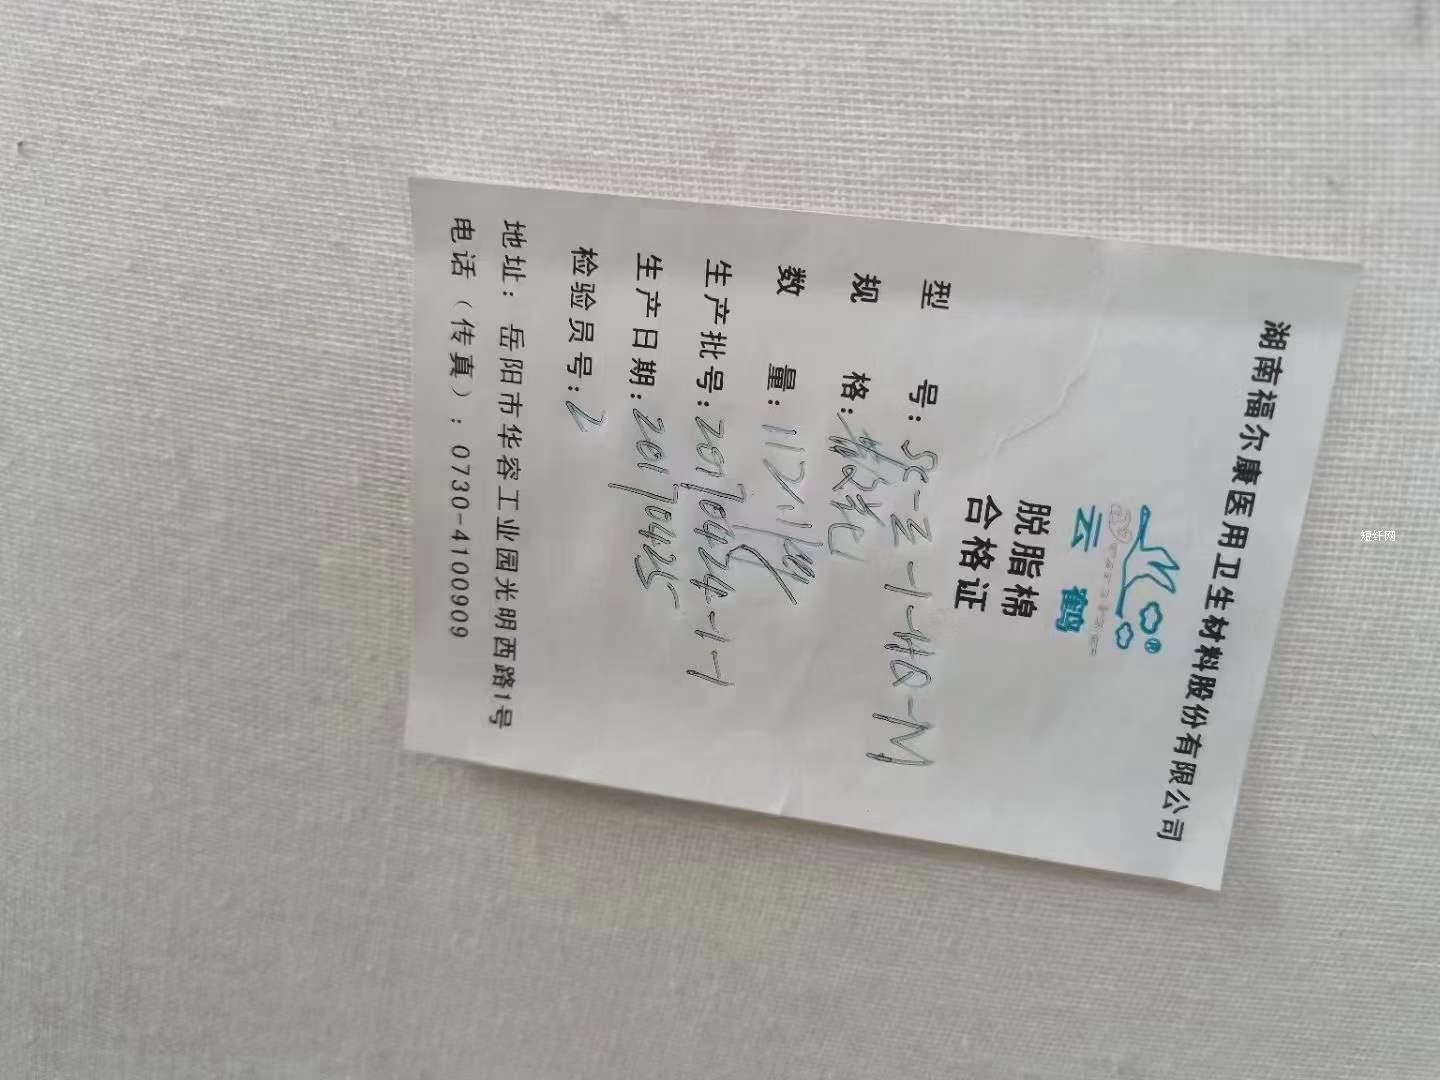 湖南福尔康医用卫生材料股份有限公司
云鹤
脱脂棉
合格证
型 号: SC-Z-1-HQ-M
规 格: 散包
数 量: 1171
生产批号: 20170424-1-1
生产日期: 20170425
检验员号: 2
地址: 岳阳市华容工业园光明西路1号
电话(传真): 0730-4100909
短纤网